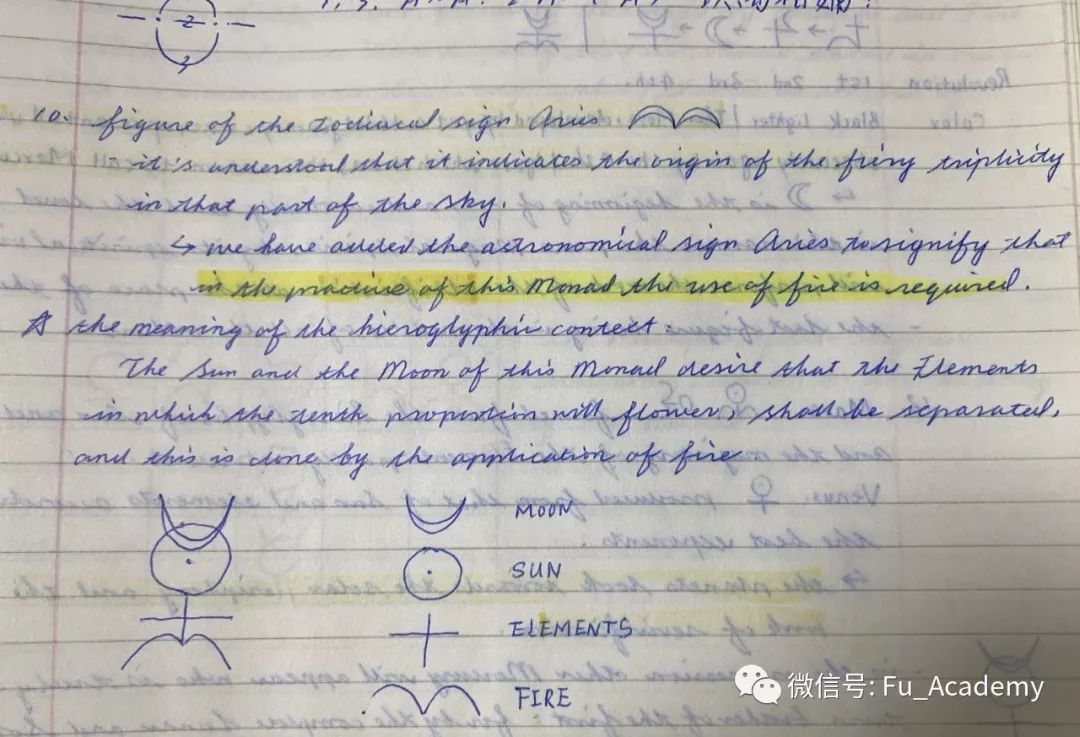 2
10. figure of the zodiacal sign Aries
it's understood that it indicates the origin of the fiery triplicity
in that part of the sky.
↳ we have added the astronomical sign Aries to signify that
in the practice of this Monad the use of fire is required.
☆ the meaning of the hieroglyphic context:
The Sun and the Moon of this Monad desire that the Elements
in which the tenth proportion will flower, shall be separated,
and this is done by the application of fire
MOON
SUN
ELEMENTS
FIRE
微信号: Fu_Academy